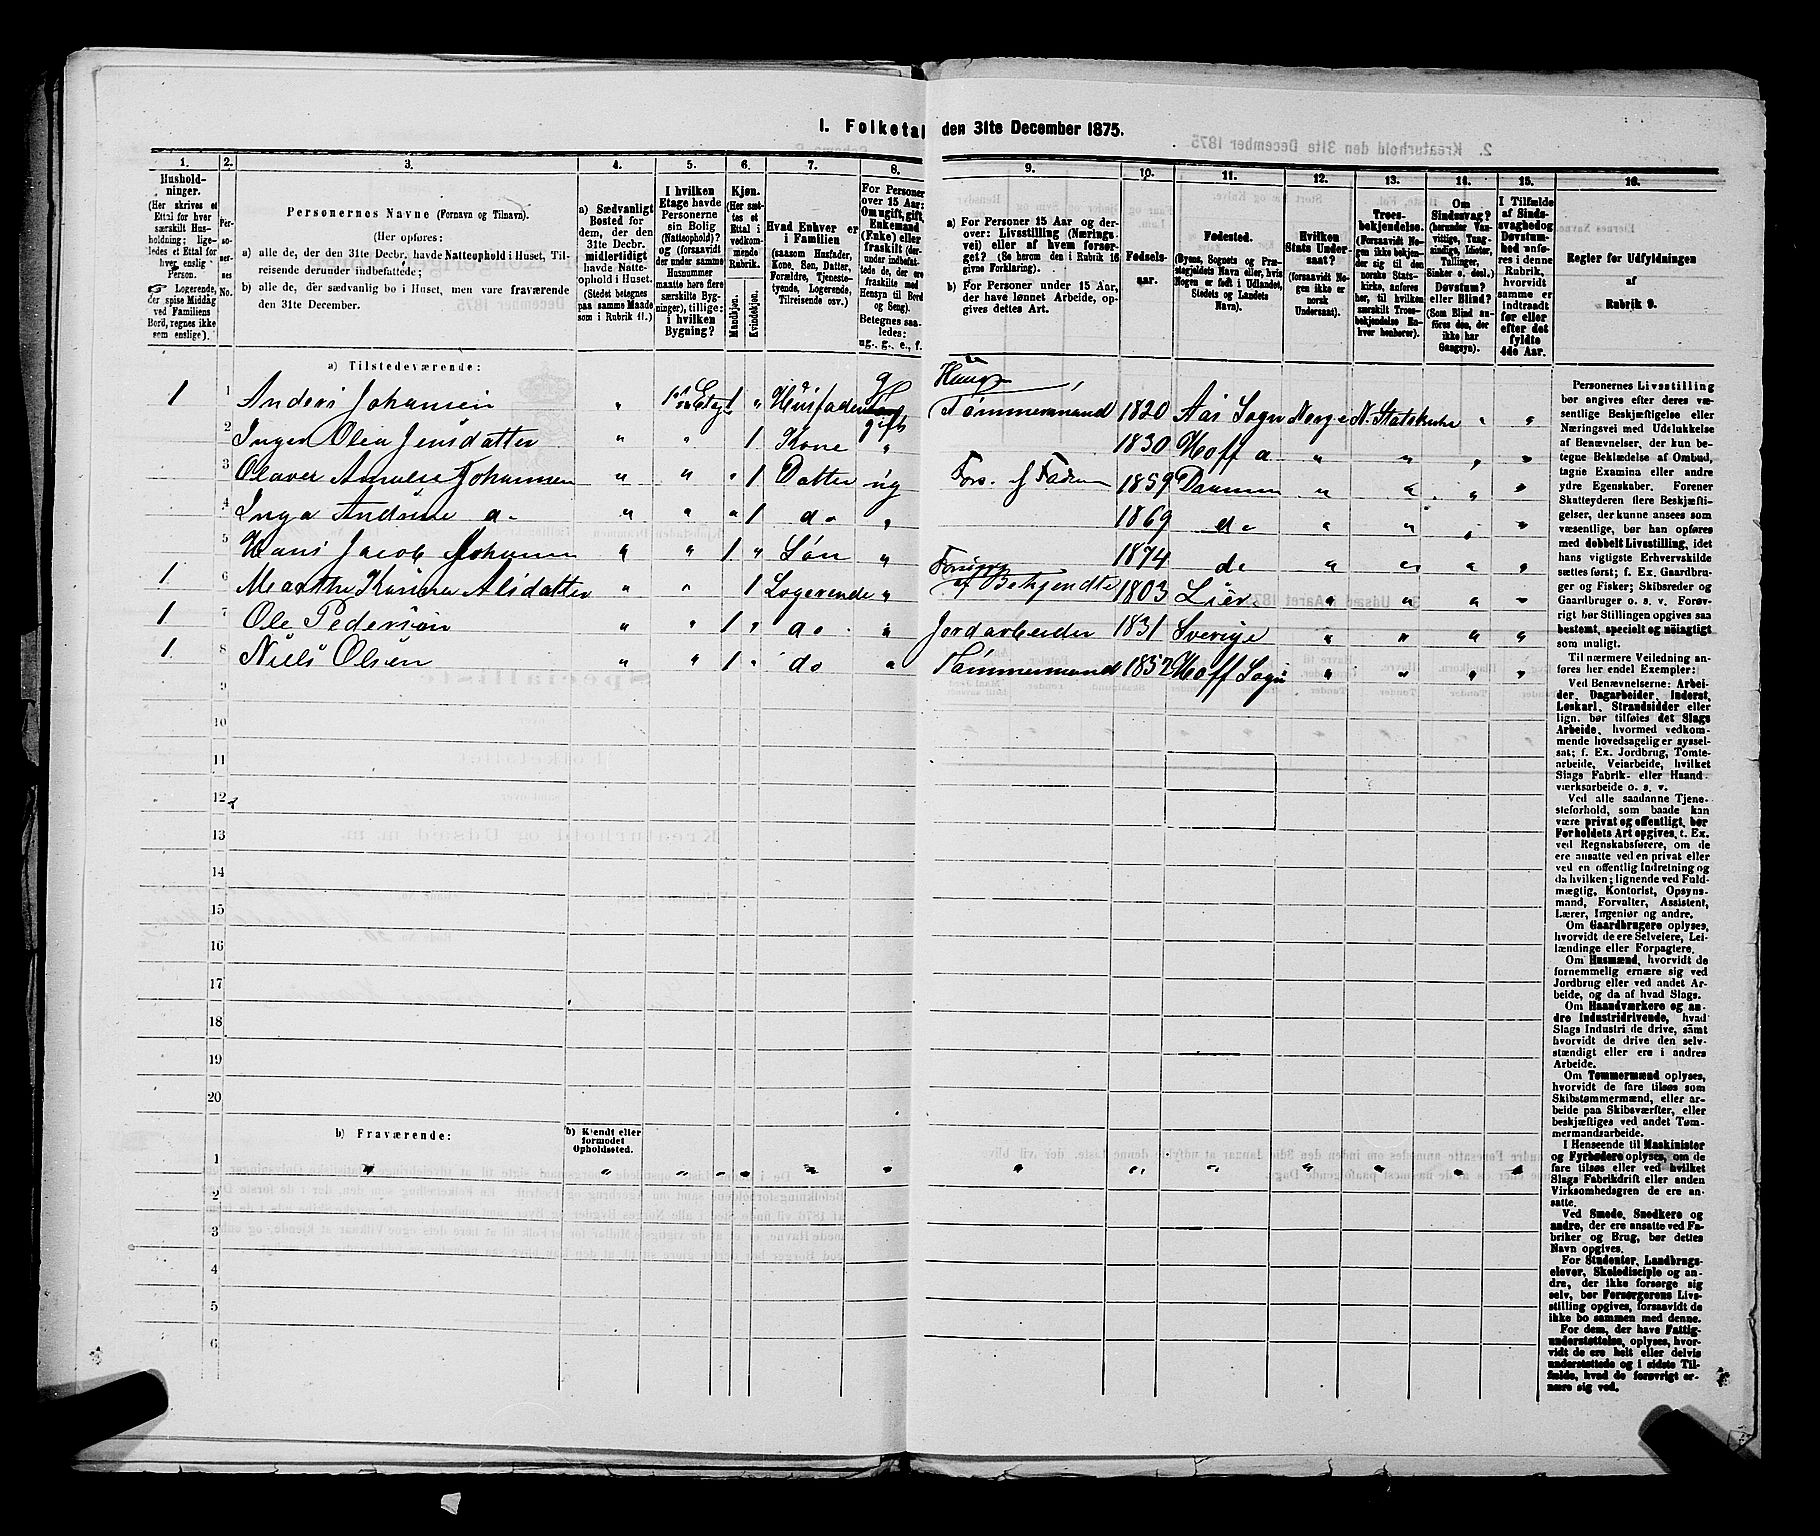 I. Folketal den 31te December 1875.
1. 2. 3. 4. 5. 6. 7. 8. 9. 10. 11. 12. 13. 14. 15. 16.
Husholdninger. (Her skrives et Ettal for hver særskilt Husholdning; ligeledes et Ettal for hver enslig Person. Logerende, der spise Middag ved Familiens Bord, regnes ikke som enslige).
Personernes No.
Personernes Navne (Fornavn og Tilnavn).
(Her opføres:
a) alle de, der den 31te Decbr. havde Natteophold i Huset, Tilreisende derunder indbefattede;
b) alle de, der sædvanlig bo i Huset, men vare fraværende den 31te December.
a) Sædvanligt Bosted for dem, der den 31te Decbr. midlertidigt havde Natteophold i Huset. (Stedet betegnes paa samme Maade som i Rubrik 11.)
I hvilken Etage havde Personerne sin Bolig (Natteophold)? og (forsaavidt der under samme Husnummer maatte høre flere særskilte Bygninger), tillige: i hvilken Bygning?
Kjøn. (Her sættes et Ettal i vedkommende Rubrik. Mandkjøn. Kvindekjøn.
Hvad Enhver er i Familien (saasom Husfader, Kone, Søn, Datter, Forældre, Tjenestetyende, Logerende, Tilreisende osv.)
For Personer over 15 Aar: Om ugift, gift, Enkemand (Enke) eller fraskilt Betegnes saaledes: ug., g., e., f.
a) For Personer 15 Aar og derover: Livsstilling (Næringsvei) eller af hvem forsørget? (Se herom den i Rubrik 16 givne Forklaring).
b) For Personer under 15 Aar, der have lønnet Arbeide, opgives dettes Art.
Fødselsaar.
Fødested. (Byens, Sognets og Præstegjeldets Navn eller, hvis Nogen er født i Udlandet, Stedets og Landets Navn).
Hvilken Stats Undersaat? (forsaavidt Nogen ikke er norsk Undersaat).
Troesbekjendelse. (Forsaavidt Nogen ikke bekjender sig til den norske Statskirke, anføres her, til hvilken særskilt Troesbekjendelse Enhver henhører).
Om Sindssvag? (herunder Vanvittige, Tungsindige, Idioter, Tullinger, Sinker o. desl.) Døvstum? eller Blind? (Som Blind anføres den, der ikke har Gangsyn).
I Tilfælde af Sindssvaghed og Døvstumhed anføres i denne Rubrik, hvorvidt samme er indtraadt før eller efter det fyldte 4de Aar.
Regler for Udfyldningen af Rubrik 9.
a) Tilstedeværende:
1 1 Anders Johansen „ 1ste Etage 1 „ Husfader gift Tømmermand 1820 Aas Sogn Norge N. Statskirke „ „
2 Inger Olea Jensdatter „ „ 1 Kone „ 1830 Hoff „ „ „ „
3 Olaver Amalie Johansen „ „ „ 1 Datter ug Fors. af Faderen 1859 Drammen „ „ „ „
4 Inga Andrine do „ „ „ 1 do „ 1869 do „ „ „ „
5 Hans Jacob Johansen „ „ 1 „ Søn „ 1874 do „ „ „ „
1 6 Marthe Karina Alsdatter „ „ 1 Logerende „ Forsørges af Bekjendte 1803 Lier „ „ „ „
1 7 Ole Pedersen „ „ 1 „ do „ Jordarbeider 1831 Sverige „ „ „ „
1 8 Niels Olsen „ „ 1 „ do „ Tømmermand 1852 Hoff Sogn „ „ „ „
9
10
11
12
13
14
15
16
17
18
19
20
b) Fraværende: b) Kjendt eller formodet Opholdssted.
1 „ „ „ „ „ „ „ „ „ „ „ „ „ „
2
3
4
5
6
Personernes Livsstilling
bør angives efter deres væsentlige Beskjæftigelse eller
Næringsvei med Udelukkelse
af Benævnelser, der kun betegne Beklædelse af Ombud,
tagne Examina eller andre
ydre Egenskaber. Forener
Skatteyderen flere Beskjæftigelser, der kunne ansees som
væsentlige, bør han opføres
med dobbelt Livsstilling, idet
hans vigtigste Erhvervskilde
sættes først; f. Ex. Gaardbruger og Fisker; Skibsreder og
Gaardbruger o. s. v. Forøvrigt bør Stillingen opgives saa
bestemt, specielt og nøiagtigt
som muligt.
Til nærmere Veiledning anføres her endel Exempler:
Ved Benævnelserne: Arbeider, Dagarbeider, Inderst,
Løskarl, Strandsidder eller
lign. bør tilføies det Slags
Arbeide, hvormed vedkommende hovedsagelig er sysselsat; f. Ex. Jordbrug, Tomtearbeide, Veiarbeide, hvilket
Slags Fabrik- eller Haandværksarbeide o. s. v.
Ved alle saadanne Tjenesteforhold, som baade kan
være privat og offentligt, bør
Forholdets Art opgives, t. Ex.
ved Regnskabsførere, om de
ere ansatte ved en privat eller
ved en offentlig Indretning og
da hvilken; lignende ved Fuldmægtig, Kontorist, Opsynsmand, Forvalter, Assistent,
Lærer, Ingeniør og andre.
Om Gaardbrugere oplyses,
hvorvidt de ere Selveiere, Leilændinge eller Forpagtere.
Om Husmænd, hvorvidt de
fornemmelig ernære sig ved
Jordbrug eller ved andet Arbeide, og da af hvad Slags.
Om Haandværkere og andre Industridrivende, hvad
Slags Industri de drive, samt
hvorvidt de drive den selvstændigt eller ere i andres
Arbeide.
Om Tømmermænd oplyses,
hvorvidt de fare tilsøs som
Skibstømmermænd, eller arbeide paa Skibsværfter, eller
beskjæftiges ved andet Tømmermandsarbeide.
I Henseende til Maskinister
og Fyrbødere oplyses, om de
fare tilsøs eller ved hvilket
Slags Fabrikdrift eller anden
Virksomhedsgren de ere ansatte.
Ved Smede, Snedkere og
andre, der ere ansatte ved Fabriker og Brug, bør dettes
Navn opgives.
For Studenter, Landbrugselever, Skoledisciple og andre, der ikke forsørge sig
selv, bør Forsørgerens Livsstilling opgives, forsaavidt de
ikke bo sammen med denne.
For dem, der have Fattigunderstøttelse, oplyses, hvorvidt de ere helt eller delvis
understøttede og i sidste Tilfælde, hvad de forøvrigt ernære sig ved.